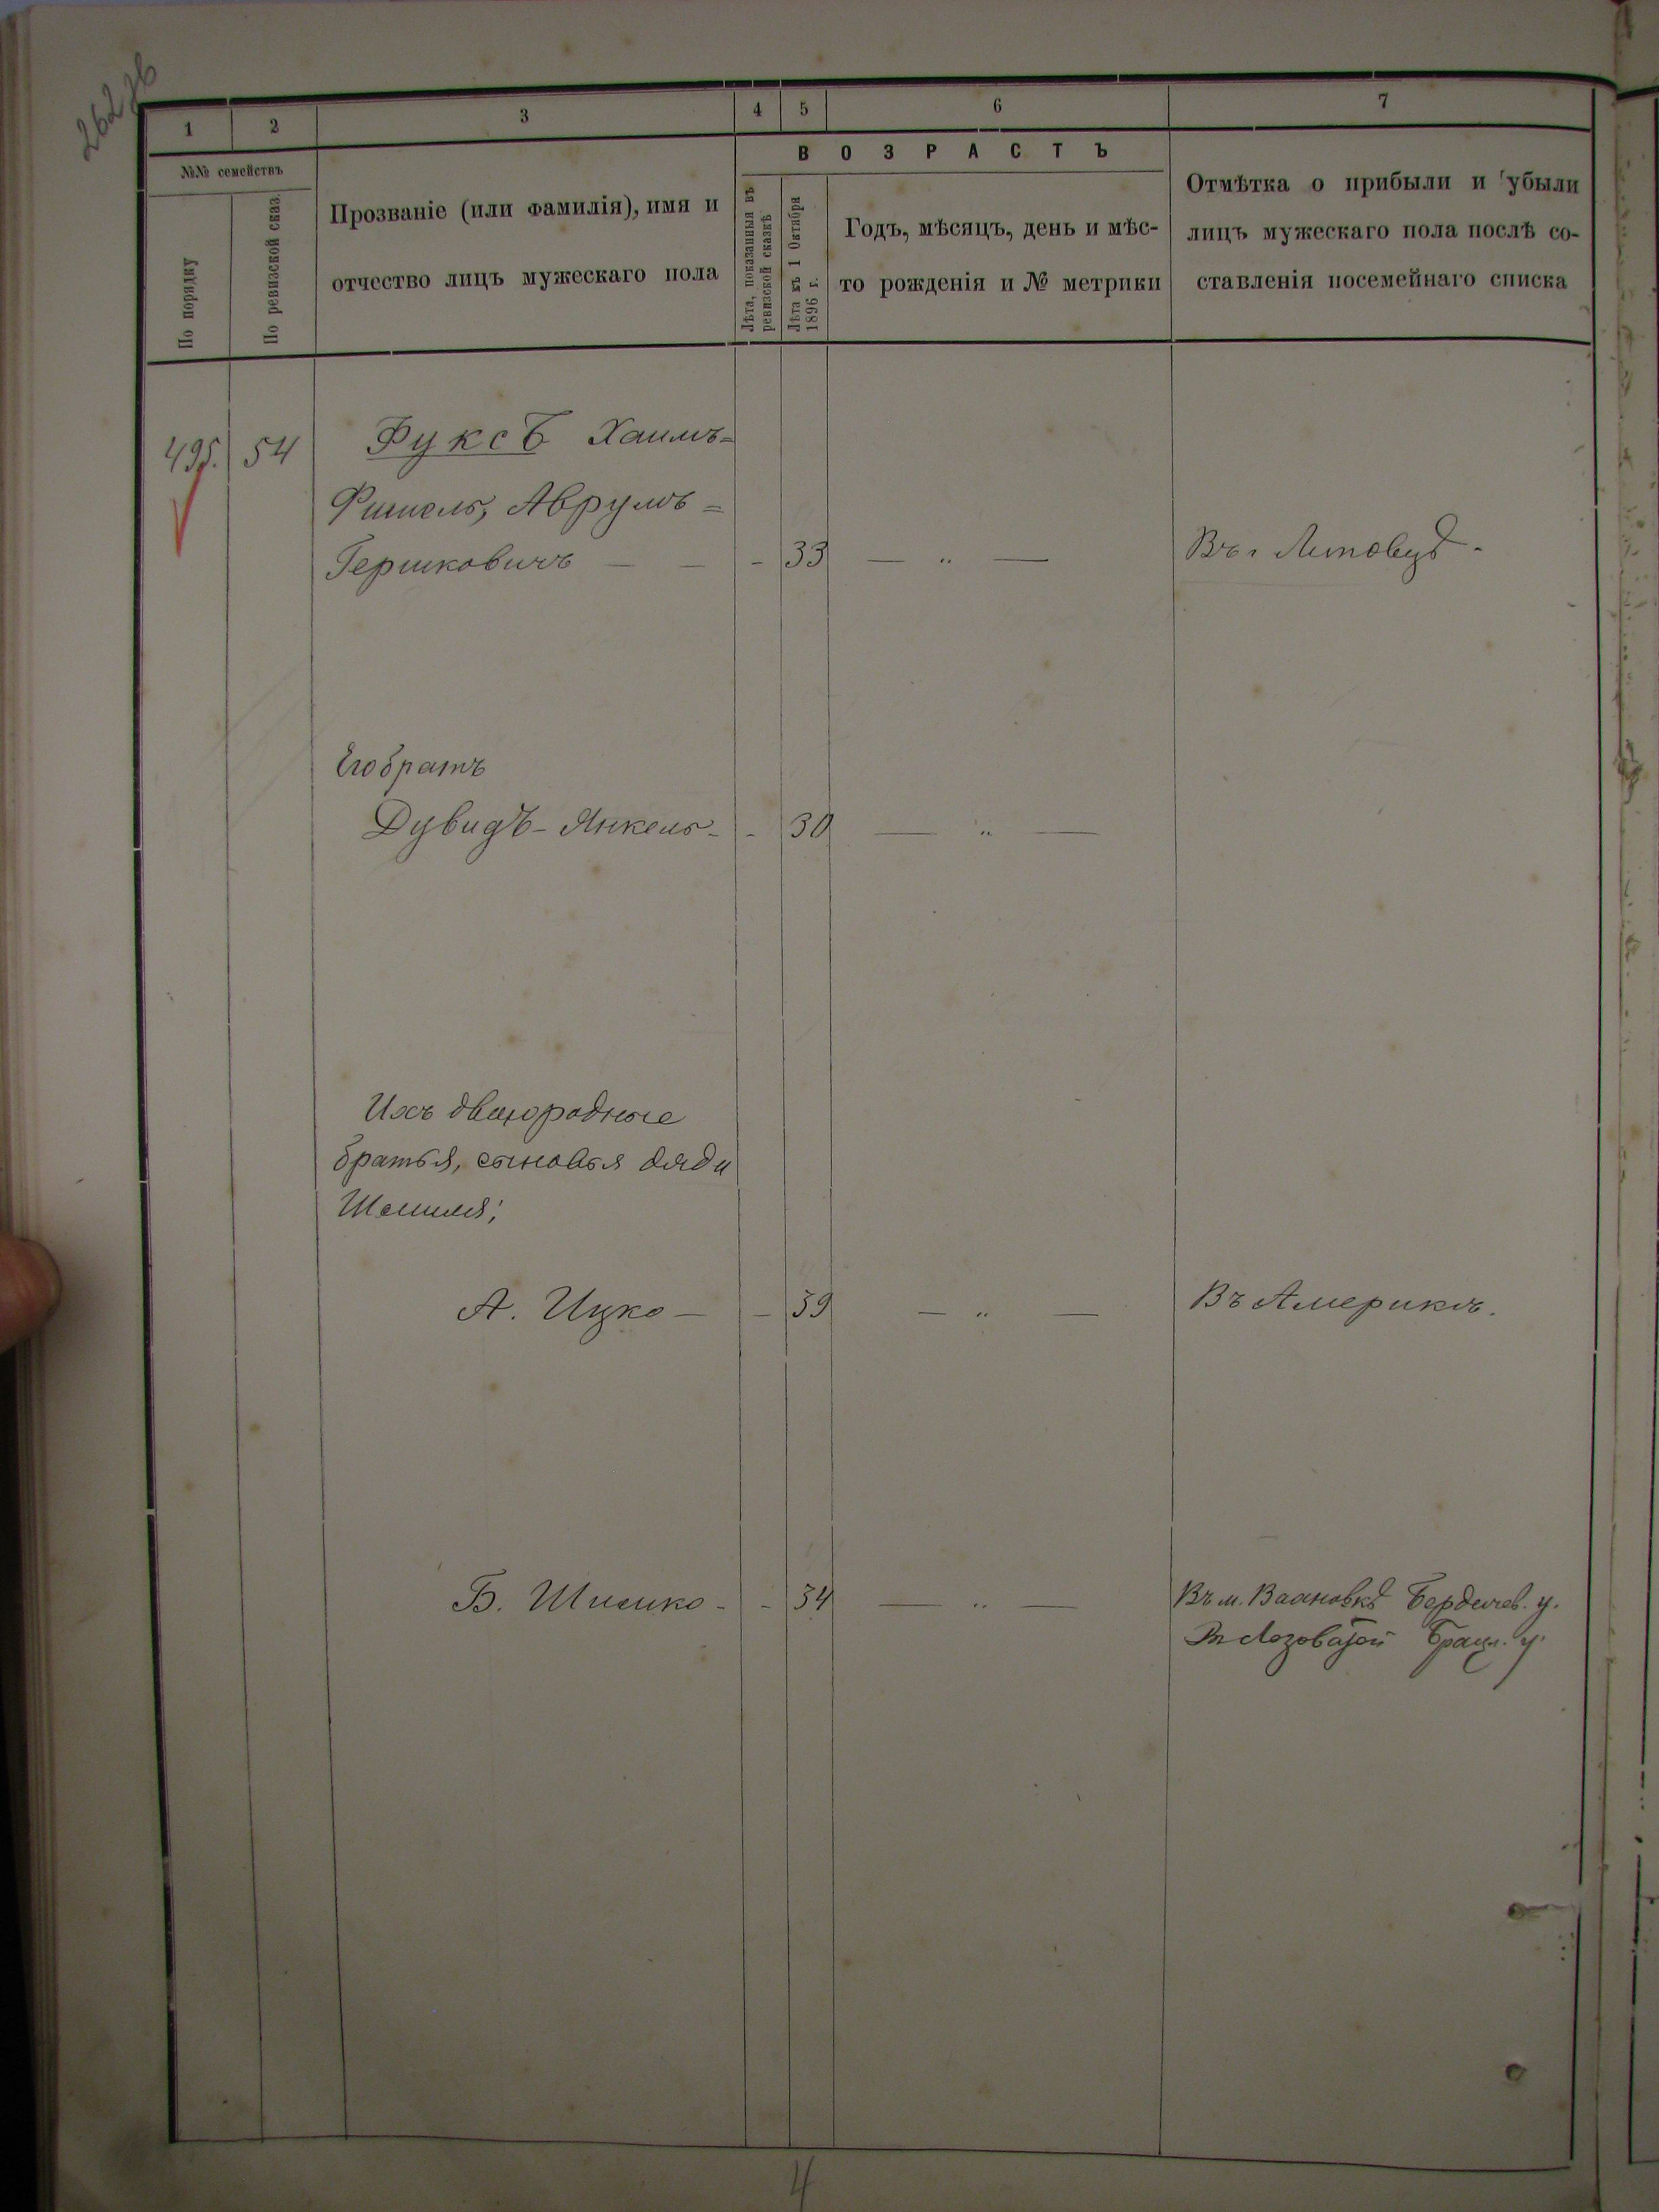 262 об
1 2 3 4 5 6 7
№№ семействъ
По порядку
По ревизской сказ.
Прозваніе (или фамилія), имя и
отчество лицъ мужескаго пола
ВОЗРАСТЪ
Лѣта, показанныя въ
ревизской сказкѣ
Лѣта къ 1 Октября
1896 г.
Годъ, мѣсяцъ, день и мѣс-
то рожденія и № метрики
Отмѣтка о прибыли и убыли
лицъ мужескаго пола послѣ со-
ставленія посемейнаго списка
495. 54 Фуксъ Хаимъ=
Фишель, Аврумъ=
Гершковичъ — — - 33 — „ — Въ г. Липовцѣ.
Его братъ
Дувидъ-Янкель - - 30 — „ —
Ихъ двоюродные
братья, сыновья дяди
А. Ицко — - 39 — „ — Въ Америкѣ.
Б. Шмилко - - 34 — „ — Въ м. Вахновкѣ Бердичев. у.
Лозоватой Брацл. у.
4